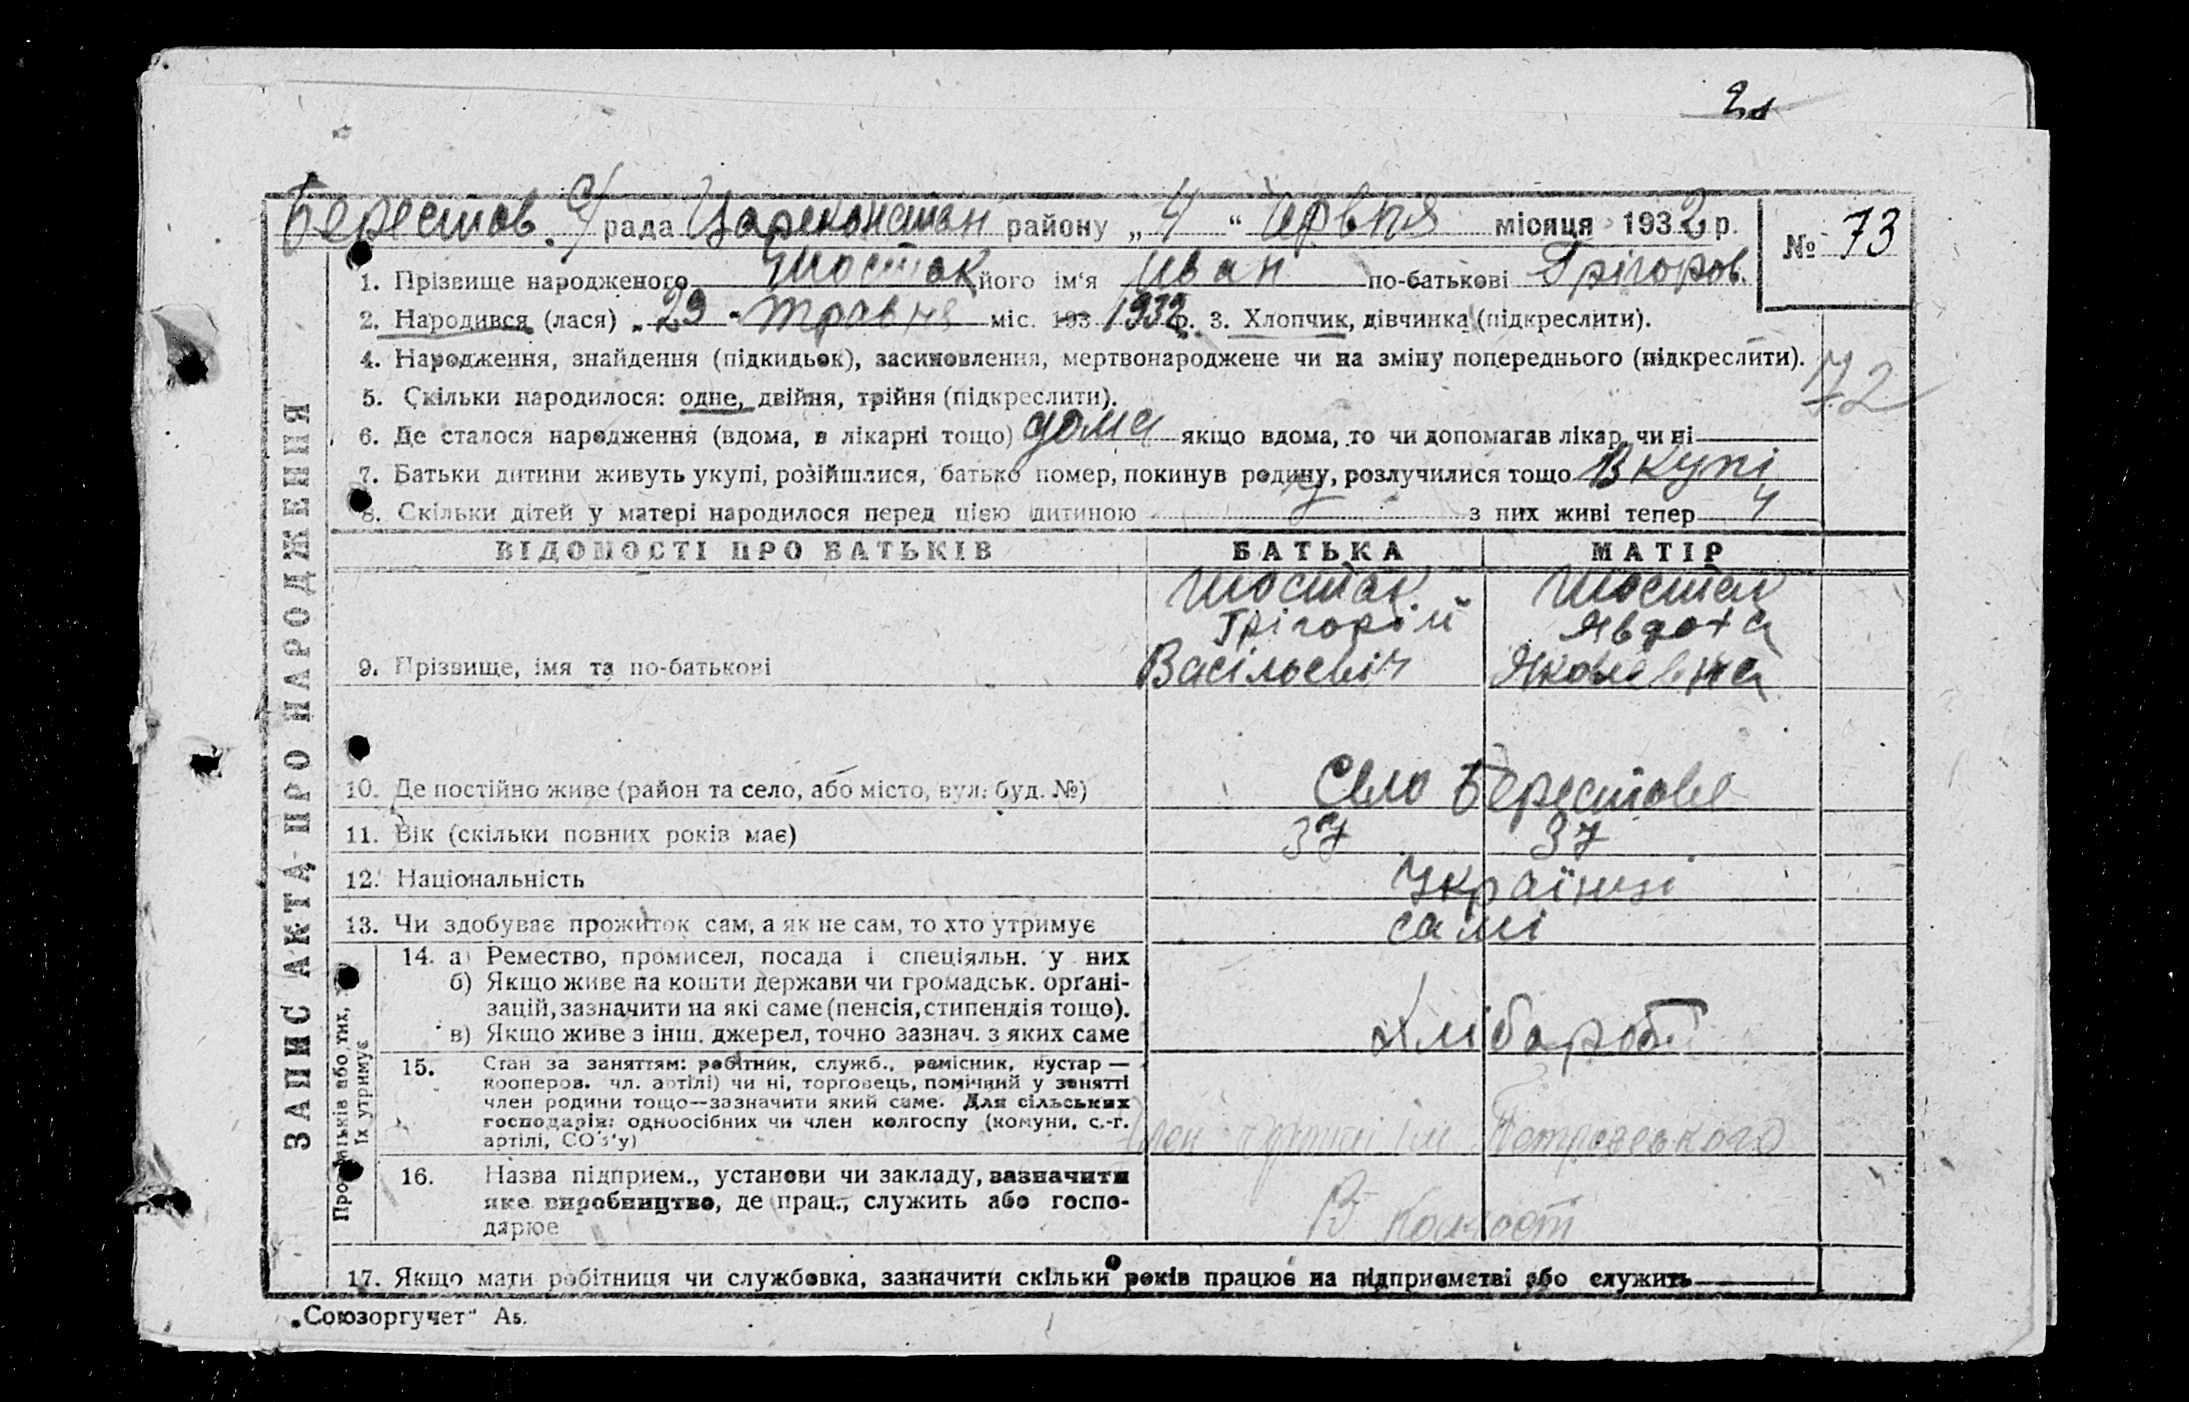 Берестов. с/рада Цареконстан району „4“ Червня місяця 1932 р. № 73
1. Прізвище народженого Шостак його ім'я Иван по-батькові Грігоров.
2. Народився (лася) „29 травня міс. 193 1932 р. 3. Хлопчик, дівчинка (підкреслити).
4. Народження, знайдення (підкидьок), засиновлення, мертвонароджене чи на зміну попереднього (підкреслити).
72
5. Скільки народилося: одне, двійня, трійня (підкреслити).
6. Де сталося народження (вдома, в лікарні тощо) дома якщо вдома, то чи допомагав лікар чи ні
7. Батьки дитини живуть укупі, розійшлися, батько помер, покинув родину, розлучилися тощо В купі
8. Скільки дітей у матері народилося перед цією дитиною з них живі тепер 4
ВІДОМОСТІ ПРО БАТЬКІВ БАТЬКА МАТІР
Шостак Шостак
Грігорій Явдоха
9. Прізвище, імя та по-батькові Васільевіч Яковлевна
10. Де постійно живе (район та село, або місто, вул. буд. №) Село Берестове
11. Вік (скільки повних років має) 37 37
12. Національність Українці
13. Чи здобуває прожиток сам, а як не сам, то хто утримує самі
14. а) Ремество, промисел, посада і спеціяльн. у них
б) Якщо живе на кошти держави чи громадськ. орґані-
зацій, зазначити на які саме (пенсія, стипендія тощо).
в) Якщо живе з інш. джерел, точно зазнач. з яких саме Хлібороби
15. Стан за заняттям: робітник, служб., ремісник, кустар —
кооперов. чл. артілі) чи ні, торговець, помічний у занятті
член родини тощо—зазначити який саме. Для сільських
господарів: одноосібних чи член колгоспу (комуни, с.-г.
артілі, СОЗ'у) Член артілі ім Петровського
16. Назва підприєм., установи чи закладу, зазначити
яке виробництво, де прац., служить або госпо-
дарює В
17. Якщо мати робітниця чи службовка, зазначити скільки років працює на підприємстві або служить
ЗАПИС АКТА ПРО НАРОДЖЕННЯ
Про батьків або тих, хто
їх утримує
„Союзоргучет“ А5.